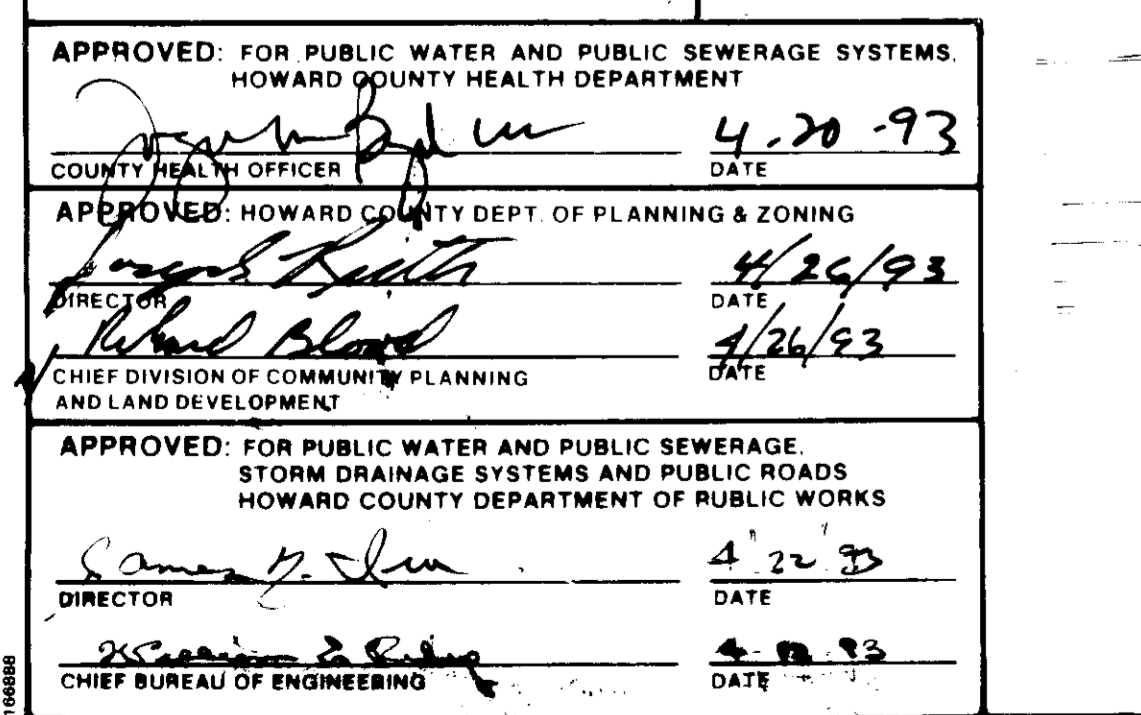 APPROVED: FOR PUBLIC WATER AND PUBLIC SEWERAGE SYSTEMS,
HOWARD COUNTY HEALTH DEPARTMENT
4-20-93
COUNTY HEALTH OFFICER DATE
APPROVED: HOWARD COUNTY DEPT. OF PLANNING & ZONING
4/26/93
DIRECTOR DATE
Richard 4/26/93
CHIEF DIVISION OF COMMUNITY PLANNING DATE
AND LAND DEVELOPMENT
APPROVED: FOR PUBLIC WATER AND PUBLIC SEWERAGE,
STORM DRAINAGE SYSTEMS AND PUBLIC ROADS
HOWARD COUNTY DEPARTMENT OF PUBLIC WORKS
James 4 22 93
DIRECTOR DATE
William
CHIEF BUREAU OF ENGINEERING DATE
166888